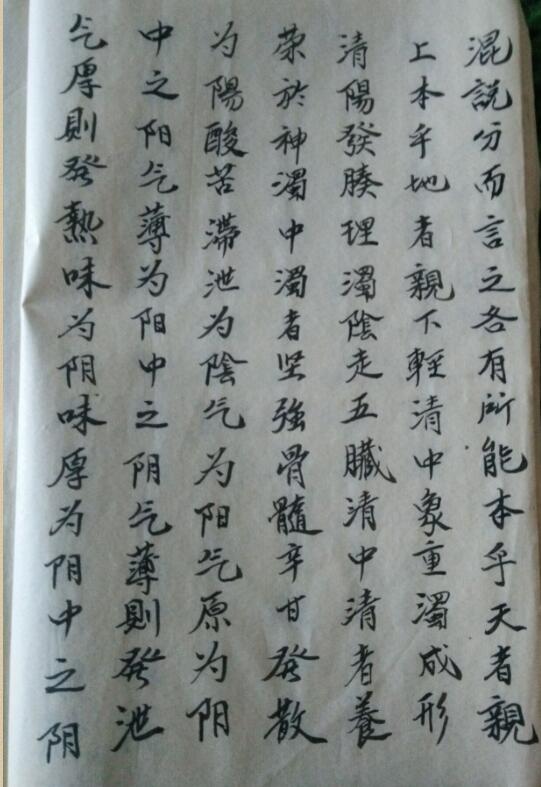 混説分而言之各有所能本乎天者親
上本乎地者親下輕清中象重濁成形
清陽發腠理濁陰走五臟清中清者養
荣於神濁中濁者坚強骨髓辛甘發散
为陽酸苦滞泄为陰气为阳气原为阴
中之阳气薄为阳中之阴气薄則發泄
气厚則發熱味为阴味厚为阴中之阴